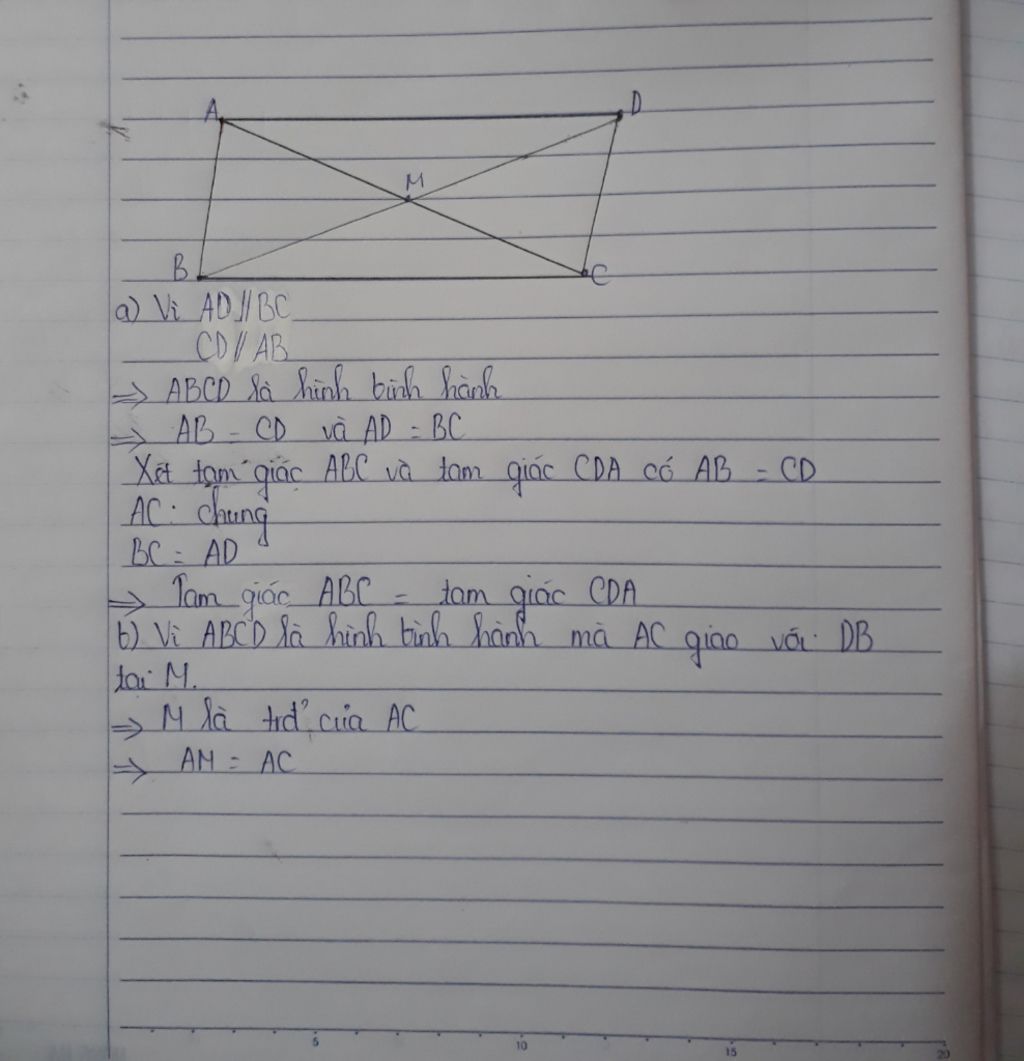 A
D
M
B
C
a) Vì AD // BC
CD // AB
=> ABCD là hình bình hành
=> AB = CD và AD = BC
Xét tam giác ABC và tam giác CDA có AB = CD
AC: chung
BC = AD
=> Tam giác ABC = tam giác CDA
b) Vì ABCD là hình bình hành mà AC giao với DB
tại M.
=> M là trđ' của AC
=> AM = AC
5
10
15
20